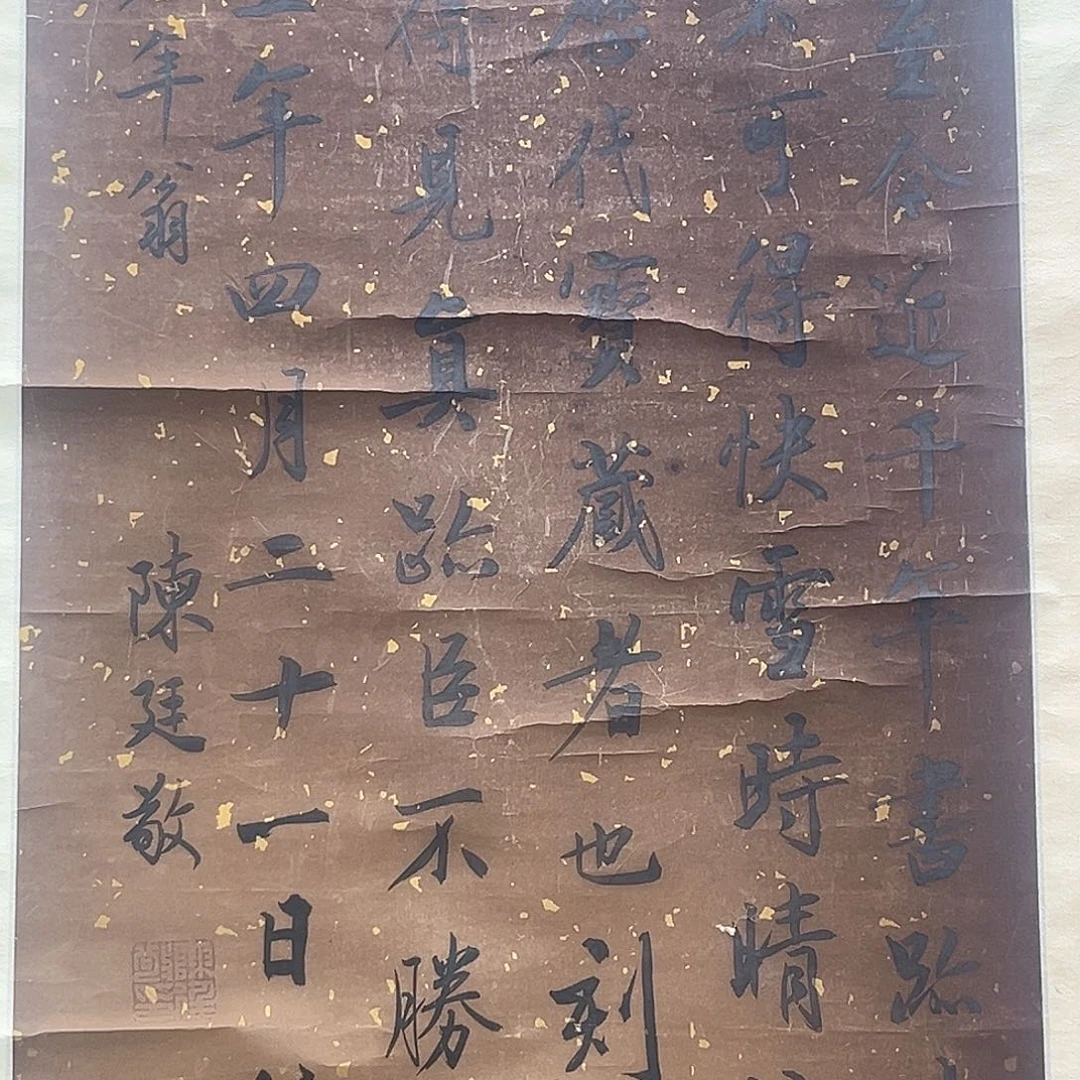 至今近千年書跡
不可得快雪時晴
歷代寶藏者也刻
得見真跡臣不勝
年四月二十一日
年翁 陳廷敬